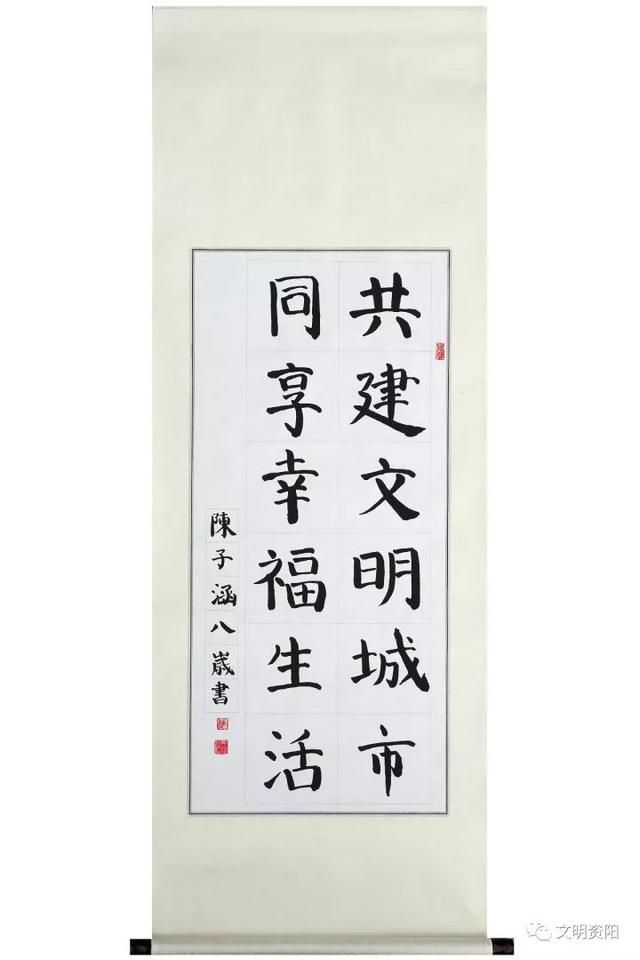 共建文明城市
同享幸福生活
陳子涵八嵗書
文明资阳